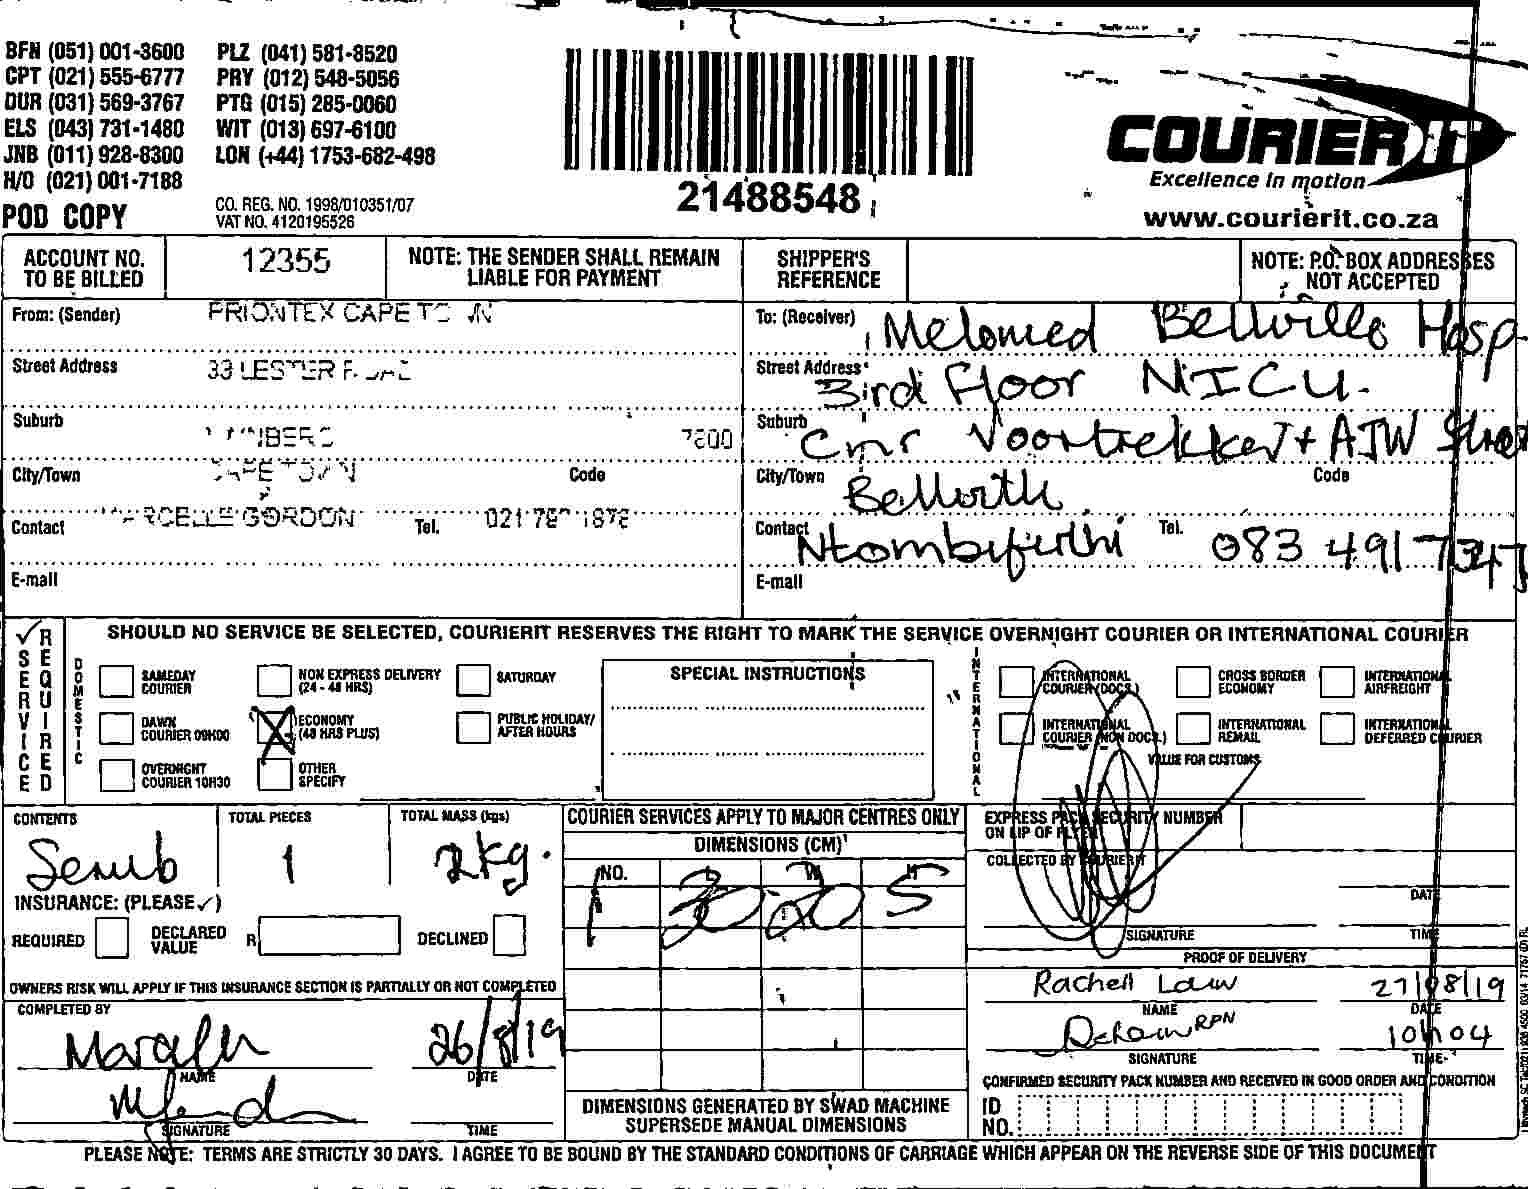 BFN (051) 001-3600 PLZ (041) 581-8520
CPT (021) 555-6777 PRY (012) 548-5056
DUR (031) 569-3767 PTG (015) 285-0060
ELS (043) 731-1480 WIT (013) 697-6100
JNB (011) 928-8300 LON (+44) 1753-682-498
H/O (021) 001-7188
POD COPY
CO. REG. NO. 1998/010351/07
VAT NO. 4120195526
21488548
COURIER IT
Excellence in motion
www.courierit.co.za
ACCOUNT NO. TO BE BILLED 12355
NOTE: THE SENDER SHALL REMAIN LIABLE FOR PAYMENT
SHIPPER'S REFERENCE
NOTE: P.O. BOX ADDRESSES NOT ACCEPTED
From: (Sender) PRIONTEX CAPE TOWN
Street Address 33 LESTER ROAD
Suburb 7800
City/Town CAPE TOWN Code
Contact MARCELLE GORDON Tel. 021
E-mail
To: (Receiver) Melomed Bellville Hosp
Street Address 3rd Floor NICU.
Suburb Cnr Voortrekker + AJW
City/Town Code
Contact Tel. 083 4917347
E-mail
✓ SERVICE REQUIRED
SHOULD NO SERVICE BE SELECTED, COURIERIT RESERVES THE RIGHT TO MARK THE SERVICE OVERNIGHT COURIER OR INTERNATIONAL COURIER
DOMESTIC
SAMEDAY COURIER
NON EXPRESS DELIVERY (24 - 48 HRS)
SATURDAY
DAWN COURIER 09H00
X ECONOMY (48 HRS PLUS)
PUBLIC HOLIDAY/ AFTER HOURS
OVERNIGHT COURIER 10H30
OTHER SPECIFY
SPECIAL INSTRUCTIONS
INTERNATIONAL
INTERNATIONAL COURIER (DOCS.)
CROSS BORDER ECONOMY
INTERNATIONAL AIRFREIGHT
INTERNATIONAL COURIER (NON DOCS.)
INTERNATIONAL REMAIL
INTERNATIONAL DEFERRED COURIER
VALUE FOR CUSTOMS
CONTENTS Scrub
TOTAL PIECES 1
TOTAL MASS (kgs) 2kg.
INSURANCE: (PLEASE ✓)
REQUIRED
DECLARED VALUE R
DECLINED
OWNERS RISK WILL APPLY IF THIS INSURANCE SECTION IS PARTIALLY OR NOT COMPLETED
COMPLETED BY
26/8/19
NAME DATE
SIGNATURE TIME
COURIER SERVICES APPLY TO MAJOR CENTRES ONLY
DIMENSIONS (CM)
NO. L W H
1 30 20 5
DIMENSIONS GENERATED BY SWAD MACHINE
SUPERSEDE MANUAL DIMENSIONS
EXPRESS PACK SECURITY NUMBER
ON LIP OF FLYER
COLLECTED BY COURIERIT
DATE
SIGNATURE TIME
PROOF OF DELIVERY
Rachell 27/08/19
NAME DATE
RPN 10h04
SIGNATURE TIME
CONFIRMED SECURITY PACK NUMBER AND RECEIVED IN GOOD ORDER AND CONDITION
ID NO.
PLEASE NOTE: TERMS ARE STRICTLY 30 DAYS. I AGREE TO BE BOUND BY THE STANDARD CONDITIONS OF CARRIAGE WHICH APPEAR ON THE REVERSE SIDE OF THIS DOCUMENT